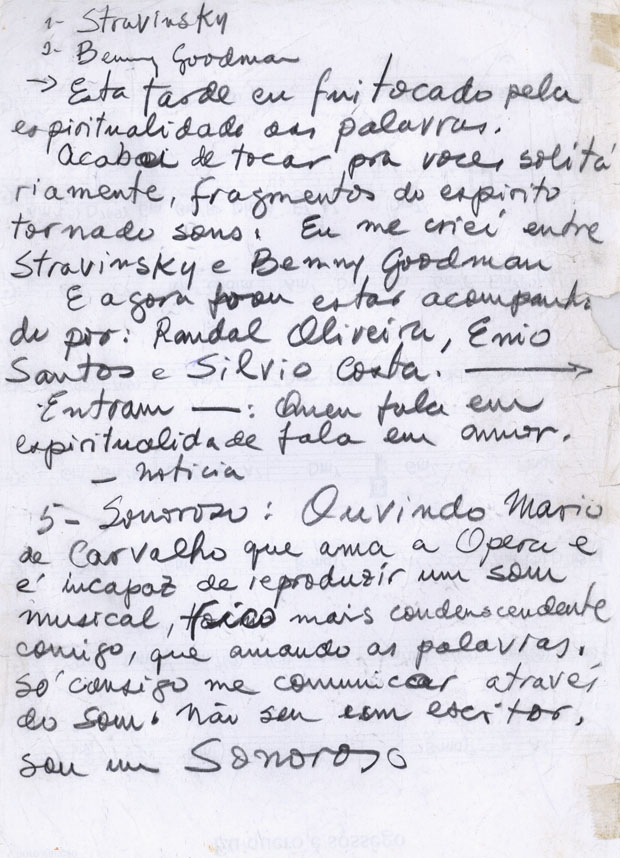 1- Stravinsky
2- Benny Goodman
→ Esta tarde eu fui tocado pela
espiritualidade das palavras.
Acabei de tocar pra voces solitá
riamente, fragmentos do espirito
tornado sons. Eu me criei entre
Stravinsky e Benny Goodman
E agora vou estar acompanha
do por: Randal Oliveira, Enio
Santos e Silvio Costa. →
Entram —: Quem fala em
espiritualidade fala em amor.
— noticia
5- Sonoroso: Ouvindo Mario
de Carvalho que ama a Opera e
é incapaz de reproduzir um som
musical, fico mais condenscendente
comigo, que amando as palavras.
só consigo me comunicar através
do som. Não sou um escritor.
sou um Sonoroso